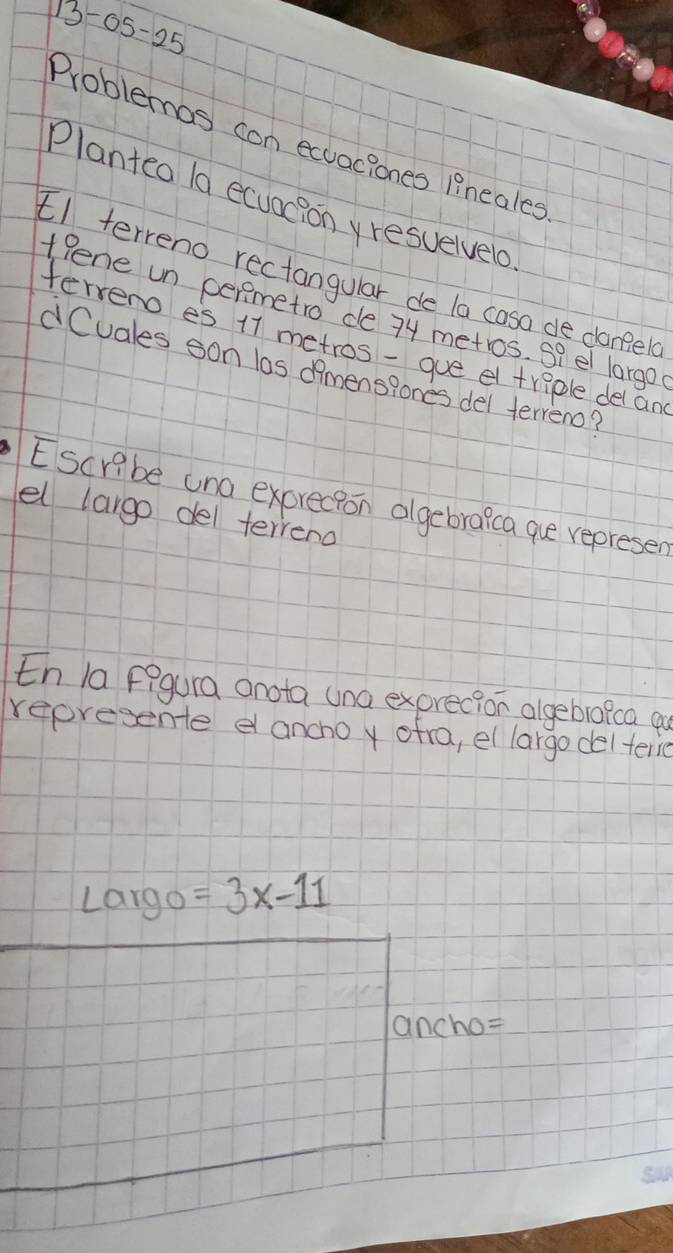 13-05-25
Problemas con ecuaciones lineales.
Plantea la ecuación y resuelvelo.
El terreno rectangular de la casa de daniela
tiene un perimetro de 74 metros. Si el largo d
terreno es 11 metros - que el triple del anc
¿Cuales son las dimensiones del terreno?
• Escribe una expreción algebraica que represen
el largo del terreno
En la figura anota una expreción algebraica qu
represente el ancho y otra, el largo del terre
Largo = 3x-11
ancho=